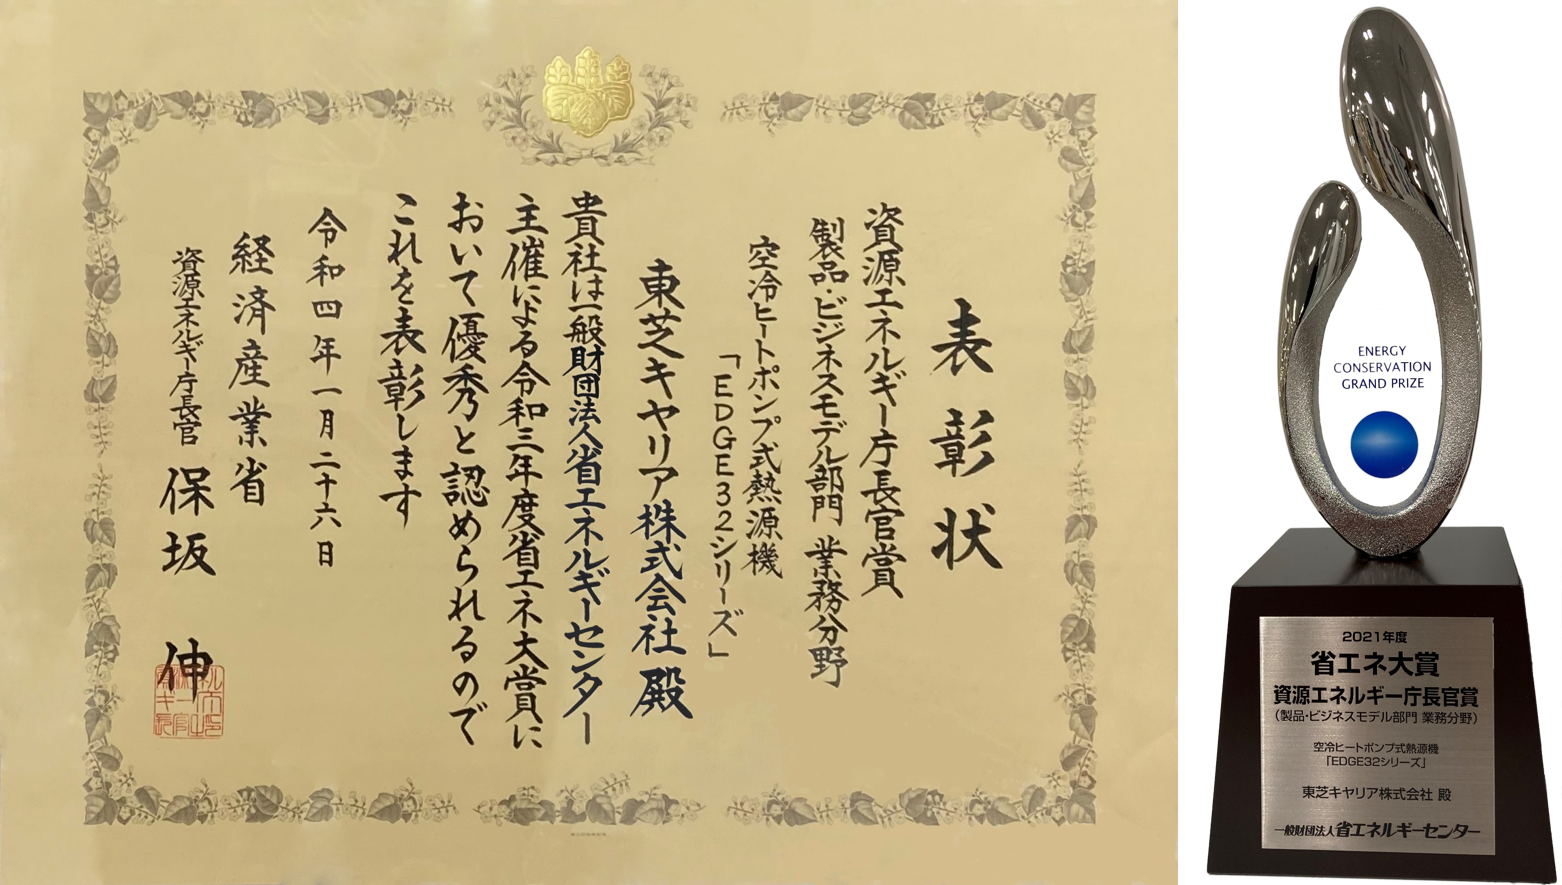 表彰状
資源エネルギー庁長官賞
製品・ビジネスモデル部門 業務分野
空冷ヒートポンプ式熱源機
「EDGE32シリーズ」
東芝キヤリア株式会社 殿
貴社は一般財団法人省エネルギーセンター
主催による令和三年度省エネ大賞に
おいて優秀と認められるので
これを表彰します
令和四年一月二十六日
経済産業省
資源エネルギー庁長官 保坂 伸
ENERGY
CONSERVATION
GRAND PRIZE
2021年度
省エネ大賞
資源エネルギー庁長官賞
（製品・ビジネスモデル部門 業務分野）
空冷ヒートポンプ式熱源機
「EDGE32シリーズ」
東芝キヤリア株式会社 殿
一般財団法人省エネルギーセンター